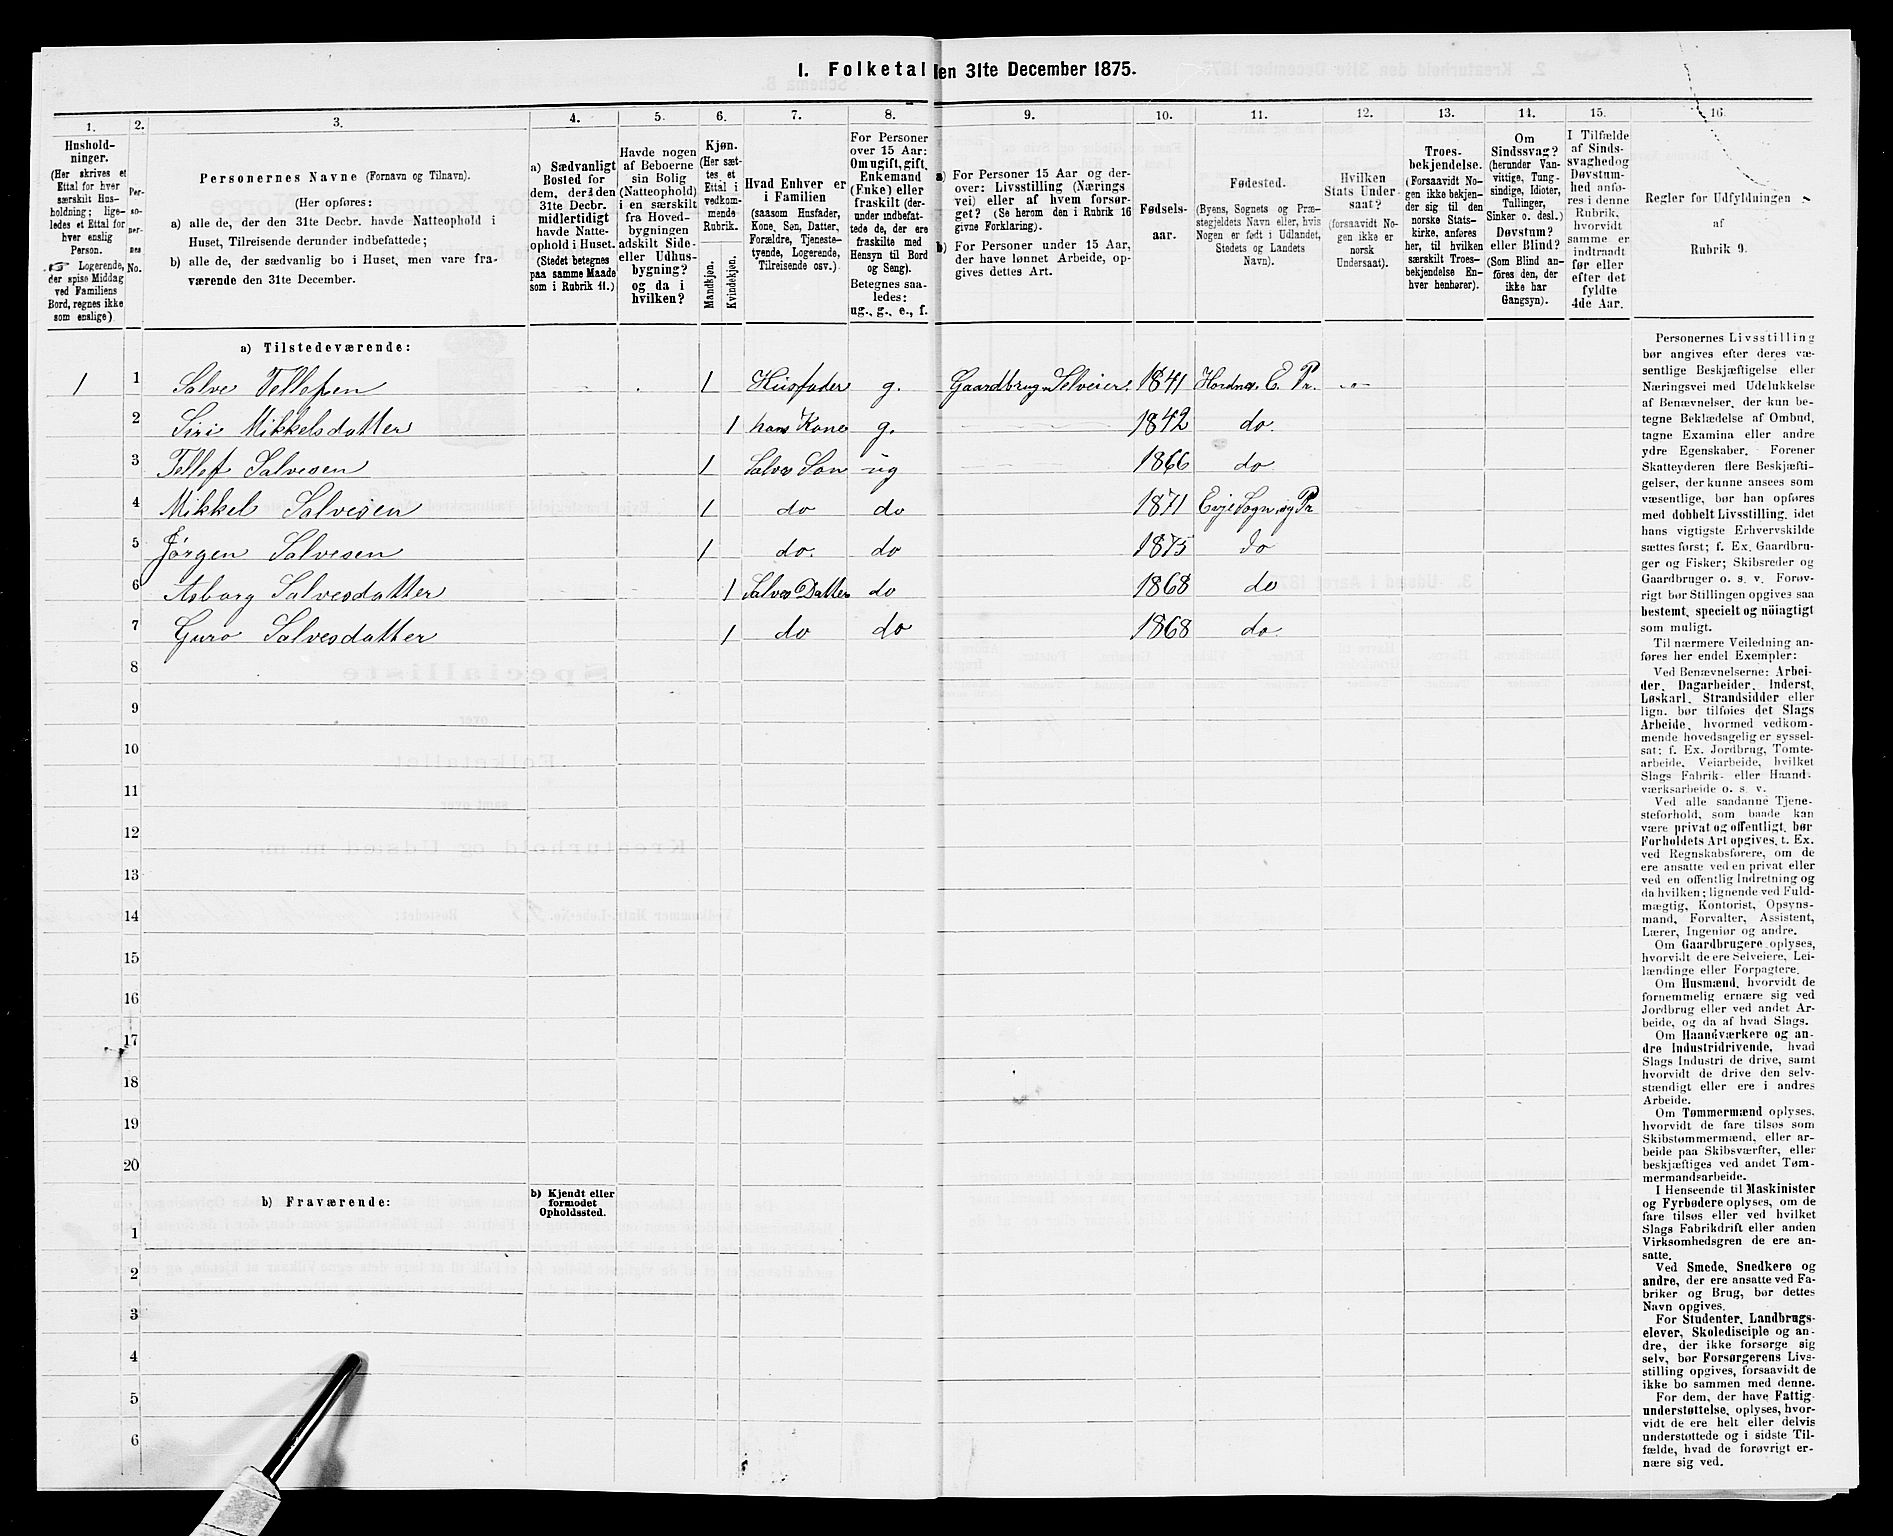 1. Folketal den 31te December 1875.
1. 2. 3. 4. 5. 6. 7. 8. 9. 10. 11. 12. 13. 14. 15. 16.
Hushold-
ninger.
(Her skrives et
Ettal for hver
særskilt Hus-
holdning; lige-
ledes et Ettal for
hver enslig
Person.
☞ Logerende,
der spise Middag
ved Familiens
Bord, regnes ikke
som enslige)
Per-
so-
ner-
nes
No.
Personernes Navne (Fornavn og Tilnavn).
(Her opføres:
a) alle de, der den 31te Decbr. havde Natteophold i
Huset, Tilreisende derunder indbefattede;
b) alle de, der sædvanlig bo i Huset, men vare fra-
værende den 31te December.
a) Sædvanligt
Bosted for
dem, der den
31te Decbr.
midlertidigt
havde Natte-
ophold i Huset.
(Stedet betegnes
paa samme Maade
som i Rubrik 11.)
Havde nogen
af Beboerne
sin Bolig
(Natteophold)
i en særskilt
fra Hoved-
bygningen
adskilt Side-
eller Udhus-
bygning?
og da i
hvilken?
Kjøn.
(Her sæt-
tes et
Ettal i
vedkom-
mende
Rubrik.
Mandkjøn.
Kvindekjøn.
Hvad Enhver er
i Familien
(saasom Husfader,
Kone, Søn, Datter,
Forældre, Tjeneste-
tyende, Logerende,
Tilreisende osv.)
For Personer
over 15 Aar:
Om ugift, gift,
Enkemand
(Enke) eller
fraskilt (der-
under indbefat-
tede de, der ere
fraskilte med
Hensyn til Bord
og Seng).
Betegnes saa-
ledes:
ug., g., e., f.
a) For Personer 15 Aar og der-
over: Livsstilling (Nærings
vei) eller af hvem forsør-
get? (Se herom den i Rubrik 16
givne Forklaring).
b) For Personer under 15 Aar,
der have lønnet Arbeide, op-
gives dettes Art.
Fødsels-
aar.
Fødested.
(Byens, Sognets og Præ-
stegjeldets Navn eller, hvis
Nogen er født i Udlandet,
Stedets og Landets
Navn).
Hvilken
Stats Under-
saat?
(forsaavidt No-
gen ikke er
norsk
Undersaat).
Troes-
bekjendelse.
(Forsaavidt No-
gen ikke bekjen-
der sig til den
norske Stats-
kirke, anføres
her, til hvilken
særskilt Troes-
bekjendelse En-
hver henhører).
Om
Sindssvag?
(herunder Van-
vittige, Tung-
sindige, Idioter,
Tallinger,
Sinker o. desl.)
Døvstum?
eller Blind?
(Som Blind an-
føres den, der
ikke har
Gangsyn).
I Tilfælde
af Sinds-
svaghed og
Døvstum-
hed anfø-
res i denne
Rubrik,
hvorvidt
samme er
indtraadt
før eller
efter det
fyldte
4de Aar.
Regler for Udfyldningen
af
Rubrik 9.
a) Tilstedeværende:
1 1 Salve Tellefsen 1 Husfader g. Gaardbrug. Selveier. 1841 E. Pr.
2 Siri Mikkelsdatter 1 hans Kone g. 1842 do.
3 Tellef Salvesen 1 Salves Søn ug 1866 do
4 Mikkel Salvesen 1 do do 1871 Evje Sogn og Pr
5 Jørgen Salvesen 1 do. do 1875 do
6 Asborg Salvesdatter 1 Salves Datter do 1868 do
7 Guro Salvesdatter 1 do do 1868 do.
8
9
10
11
12
13
14
15
16
17
18
19
20
b) Fraværende:
b) Kjendt eller
formodet
Opholdssted.
1
2
3
4
5
6
Personernes Livsstilling
bør angives efter deres væ-
sentlige Beskjæftigelse eller
Næringsvei med Udelukkelse
af Benævnelser, der kun be-
tegne Beklædelse af Ombud,
tagne Examina eller andre
ydre Egenskaber. Forener
Skatteyderen flere Beskjæfti-
gelser, der kunne ansees som
væsentlige, bør han opføres
med dobbelt Livsstilling, idet
hans vigtigste Erhvervskilde
sættes først; f. Ex. Gaardbru-
ger og Fisker; Skibsreder og
Gaardbruger o. s. v. Forøv-
rigt bør Stillingen opgives saa
bestemt, specielt og nöiagtigt
som muligt.
Til nærmere Veiledning an-
føres her endel Exempler:
Ved Benævnelserne: Arbei-
der, Dagarbeider, Inderst,
Løskarl, Strandsidder eller
lign. bør tilføies det Slags
Arbeide, hvormed vedkom-
mende hovedsagelig er syssel-
sat; f. Ex. Jordbrug, Tomte-
arbeide, Veiarbeide, hvilket
Slags Fabrik- eller Haand-
værksarbeide o. s. v.
Ved alle saadanne Tjene-
steforhold, som baade kan
være privat og offentligt, bør
Forholdets Art opgives, t. Ex.
ved Regnskabsførere, om de
ere ansatte ved en privat eller
ved en offentlig Indretning og
da hvilken; lignende ved Fuld-
mægtig, Kontorist, Opsyns-
mand, Forvalter, Assistent,
Lærer, Ingeniør og andre.
Om Gaardbrugere oplyses,
hvorvidt de ere Selveiere, Lei-
lændinge eller Forpagtere.
Om Husmænd, hvorvidt de
fornemmelig ernære sig ved
Jordbrug eller ved andet Ar-
beide, og da af hvad Slags.
Om Haandværkere og an-
dre Industridrivende, hvad
Slags Industri de drive, samt
hvorvidt de drive den selv-
stændigt eller ere i andres
Arbeide.
Om Tømmermænd oplyses,
hvorvidt de fare tilsøs som
Skibstømmermænd, eller ar-
beide paa Skibsværfter, eller
beskjæftiges ved andet Tøm-
mermandsarbeide.
I Henseende til Maskinister
og Fyrbødere oplyses, om de
fare tilsøs eller ved hvilket
Slags Fabrikdrift eller anden
Virksomhedsgren de ere an-
satte.
Ved Smede, Snedkere og
andre, der ere ansatte ved Fa-
briker og Brug, bør dettes
Navn opgives.
For Studenter, Landbrugs-
elever, Skoledisciple og an-
dre, der ikke forsørge sig
selv, bør Forsørgerens Livs-
stilling opgives, forsaavidt de
ikke bo sammen med denne.
For dem, der have Fattig-
understøttelse, oplyses, hvor-
vidt de ere helt eller delvis
understøttede og i sidste Til-
fælde, hvad de forøvrigt er-
nære sig ved.